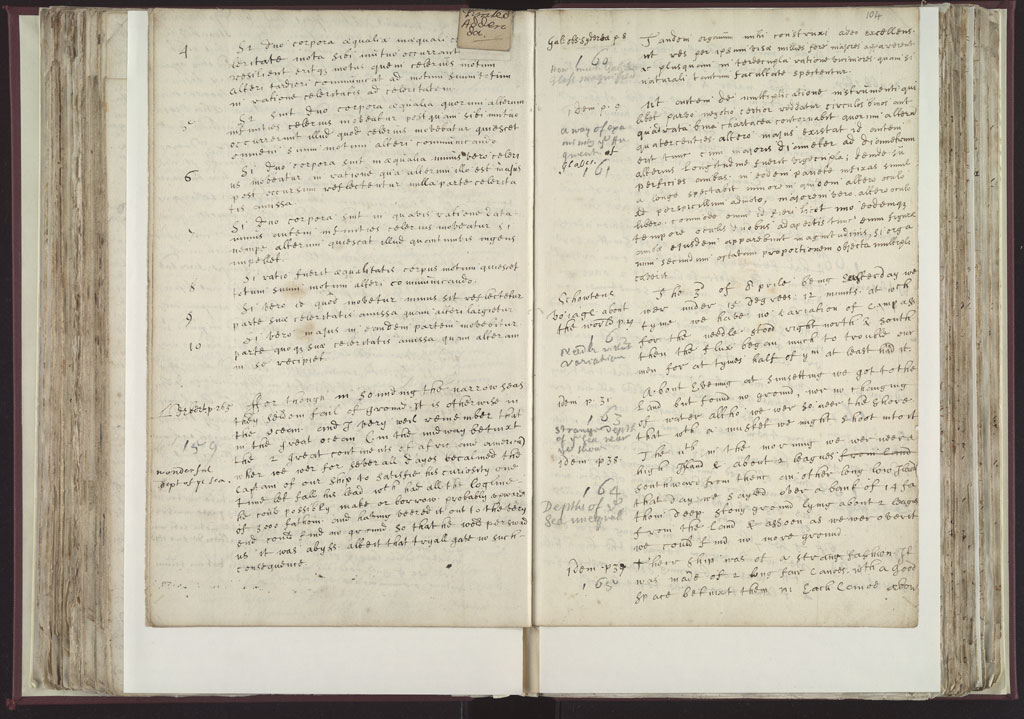 Printed
Adden
da.
4 Si duo corpora æqualia inæquali ce
leritate mota sibi mutuo occurrant
resilient eritq motus quem celerius motum
alteri tardiori communicat ad motum suum
in ratione celeritatis ad celeritatem
5 Si sint duo corpora æqualia quorum alterum
infinities celerius mobeatur postquam sibi mutuo
occurrerint illud quod celerius mobebatur quiescet
omnem suum motum alteri communicando
6 Si duo corpora sint inæqualia minus vero celeri
us mobeatur in ratione qua alterum illo est majus
post occursum reflectentur nulla parte celerita
tis amissa
7 Si duo corpora sint in quavis ratione data
minus autem infinities celerius mobeatur si
nempe alterum quiescat illud quantumvis ingens
impellet.
8 Si ratio fuerit æqualitatis corpus motum quiescet
totum suum motum alteri communicando.
9 Si vero id quod mobetur minus sit reflectetur
parte suæ celeritatis amissa quam alteri largietur
10 Si vero majus in eandem partem mobebitur
parte quoq suæ celeritatis amissa quam alterum
in se recipiet
p 265
159
wonderful
dept of ye sea.
ffor though in sounding the narrow seas
they seldom fail of ground. It is otherwise in
the ocean. and I very well remember that
in the great ocean (in the midway betwixt
the 2 great continents of afric and america)
wher we wer for severall dayes becalmed the
captain of our ship to satisfie his curiosity one
time let fall his lead with had all the logline
he could possibly make or borrow probably upward
of 3000 fathom. and having veered it out to the very
end could find no ground so that he would perswad
us it was abyss albeit that tryall gave no such
consequence
104
Gal. obs sydrea p 8
160
Tandem organum mihi construxi adeo excellens.
ut res per ipsum visæ millies fere majores appareren
& plusquam in terdecupla ratione viciniores quam si
naturali tantum facultate spectentur.
idem p. 9
a way of
of
glasses.
161
Ut autem de multiplicatione instrumenti qui
libet parvo negotio certior reddatur circulos binos aut
quadrata bina chartacea contornabit quorum alterum
quatercenties altero majus existat id autem
erit tunc cum majoris diameter ad diametrum
alterius longitudine fuerit vigecupla; deinde su
perficies ambas in eodem pariete infixas simul
a longe spectabit minorem quidem altero oculo
ad perspicillum admoto, majorem vero altero oculo
libero. commode enim id fieri licet uno eodemq
tempore oculis duobus adapertis tunc enim figuræ
ambæ ejusdem apparebunt magnitudinis, si orga
num secundum optatam proportionem objecta multipli
caverit
Schoutens
voiage about
the world p 29
162
variation
The 3d of Aprile being Easterday we
wer under 15 degrees. 12 minuts. at wch
tyme we have no variation of compass
for the needle stood right north & south
then the flux began much to trouble our
men for at tymes half of ym at least had it.
idem p. 31
163
strange depth
of ye sea near
ye shore
About evening at sunsetting we got to the
land but found no ground, nor no changing
of water altho we wer so neer the shore
that with a musket we might shoot unto it
idem p 38.
164
Depths of ye
Sea unequall
The 11th. in the morning we wer neer a
high Iland & about 2 leagues from land
southward from them an other long low Iland
that day we sayled over a bank of 14 fa
thom deep stony ground lying about 2 leagu
from the land & assoon as we wer over it
we could find no more ground
idem. p 39
165
Their ship was of a strang fashion. It
was made of 2 long fair canoes. with a good
space betwixt them in each canoe about